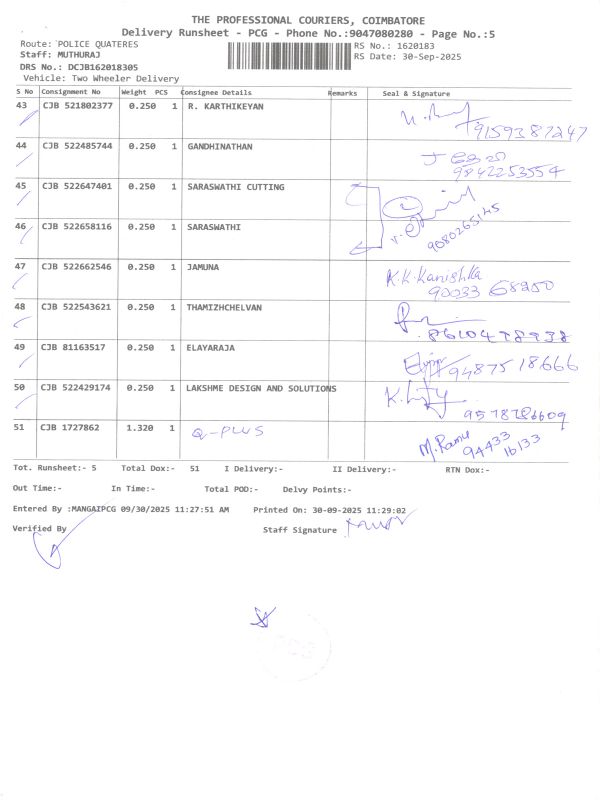 THE PROFESSIONAL COURIERS, COIMBATORE
Delivery Runsheet - PCG - Phone No.:9047080280 - Page No.:5
Route: POLICE QUATERES RS No.: 1620183
Staff: MUTHURAJ RS Date: 30-Sep-2025
DRS No.: DCJB162018305
Vehicle: Two Wheeler Delivery
S No Consignment No Weight PCS Consignee Details Remarks Seal & Signature
43 CJB 521802377 0.250 1 R. KARTHIKEYAN
9159387247
44 CJB 522485744 0.250 1 GANDHINATHAN
9842253554
45 CJB 522647401 0.250 1 SARASWATHI CUTTING
46 CJB 522658116 0.250 1 SARASWATHI
9080265145
47 CJB 522662546 0.250 1 JAMUNA K.K.Kanishka
90033 68250
48 CJB 522543621 0.250 1 THAMIZHCHELVAN
8610478938
49 CJB 81163517 0.250 1 ELAYARAJA
9487518666
50 CJB 522429174 0.250 1 LAKSHME DESIGN AND SOLUTIONS
51 CJB 1727862 1.320 1 Q-PLUS M.Ramu
94433
16133
Tot. Runsheet:- 5 Total Dox:- 51 I Delivery:- II Delivery:- RTN Dox:-
Out Time:- In Time:- Total POD:- Delvy Points:-
Entered By :MANGAIPCG 09/30/2025 11:27:51 AM Printed On: 30-09-2025 11:29:02
Verified By Staff Signature